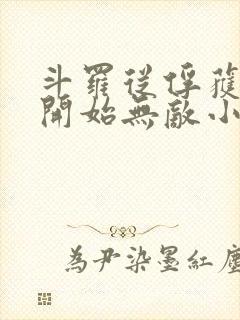 斗羅從俘獲
開始無敵小
為尹染墨紅塵